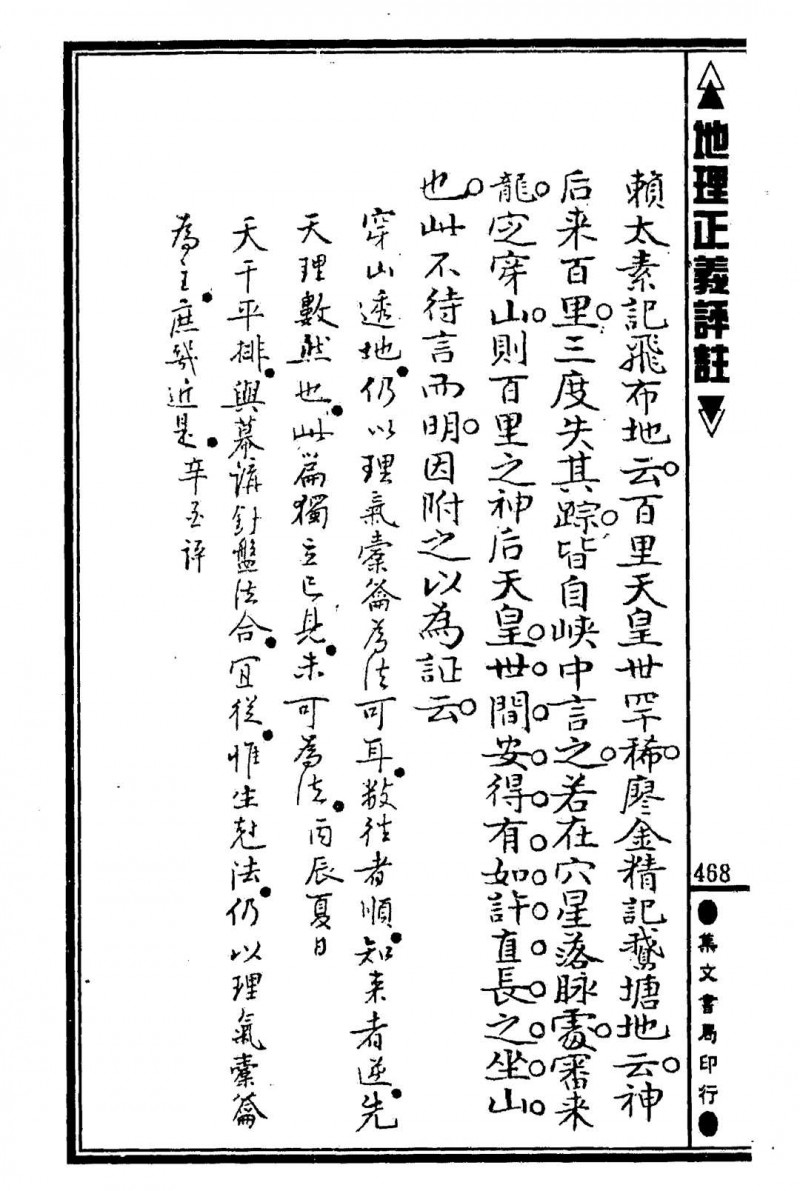 地理正義評註
468
集文書局印行
賴太素記飛布地云百里天皇世罕稀廖金精記鵝塘地云神
后来百里三度失其踪皆自峽中言之若在穴星落脉處審来
龍定穿山則百里之神后天皇世間安得有如許直長之坐山
也此不待言而明因附之以為証云
穿山透地仍以理氣橐籥為法可耳数往者順知来者逆先
天理數然也此篇獨立已見未可為法丙辰夏日
天干平排與慕講針盤法合宜從惟生尅法仍以理氣橐籥
為主庶幾近是辛至评